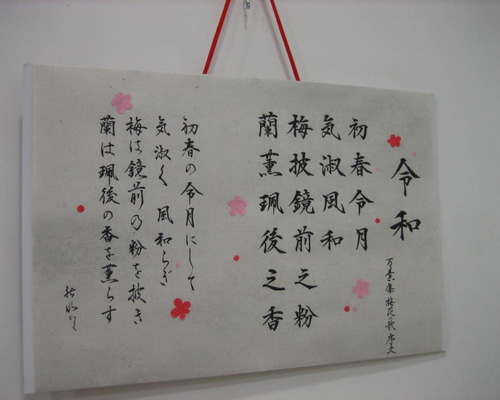 令和
万葉集梅花の歌序文
初春令月
気淑風和
梅披鏡前之粉
蘭薫珮後之香
初春の令月にして
気淑く風和らぎ
梅は鏡前の粉を披き
蘭は珮後の香を薫らす